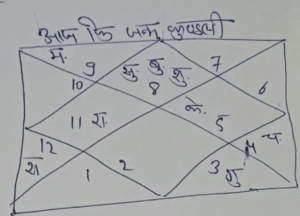 आज कि जन्म कुण्डली
मं. 9 सु. बु. शु. 7
10 8 6
11 रा. के. 5
12 4 च.
श 1 2 3 गु